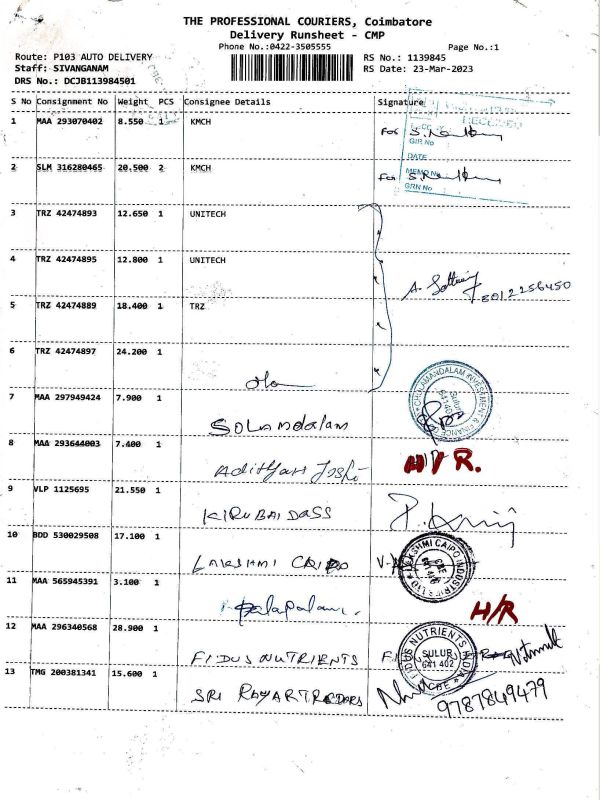 THE PROFESSIONAL COURIERS, Coimbatore
Delivery Runsheet - CMP
Phone No.:0422-3505555
Page No.:1
Route: P103 AUTO DELIVERY
RS No.: 1139845
Staff: SIVANGANAM
RS Date: 23-Mar-2023
DRS No.: DCJB113984501
S No Consignment No Weight PCS Consignee Details Signature
1 MAA 293070402 8.550 1 KMCH
RECEIVED
For
GIR No
DATE
2 SLM 316280465 20.500 2 KMCH
MEMO No
For
GRN No
3 TRZ 42474893 12.650 1 UNITECH
4 TRZ 42474895 12.800 1 UNITECH
8012256450
5 TRZ 42474889 18.400 1 TRZ
6 TRZ 42474897 24.200 1
7 MAA 297949424 7.900 1 SOLAMdalam
CHOLAMANDALAM INVESTMENT & FINANCE
Sulur
8 MAA 293644003 7.400 1 Adithyan Joshi H/R.
9 VLP 1125695 21.550 1 KIRUBAI DASS
10 BDD 530029508 17.100 1 LAKSHMI CAIPO
LAKSHMI CAIPO INDUSTRIES LTD
11 MAA 565945391 3.100 1 H/R
12 MAA 296340568 28.900 1 FIDUS NUTRIENTS
FIDAS NUTRIENTS INDIA
SULUR
641 402
CBE
13 TMG 200381341 15.600 1 SRI RAYAR TREDARS
9787849479